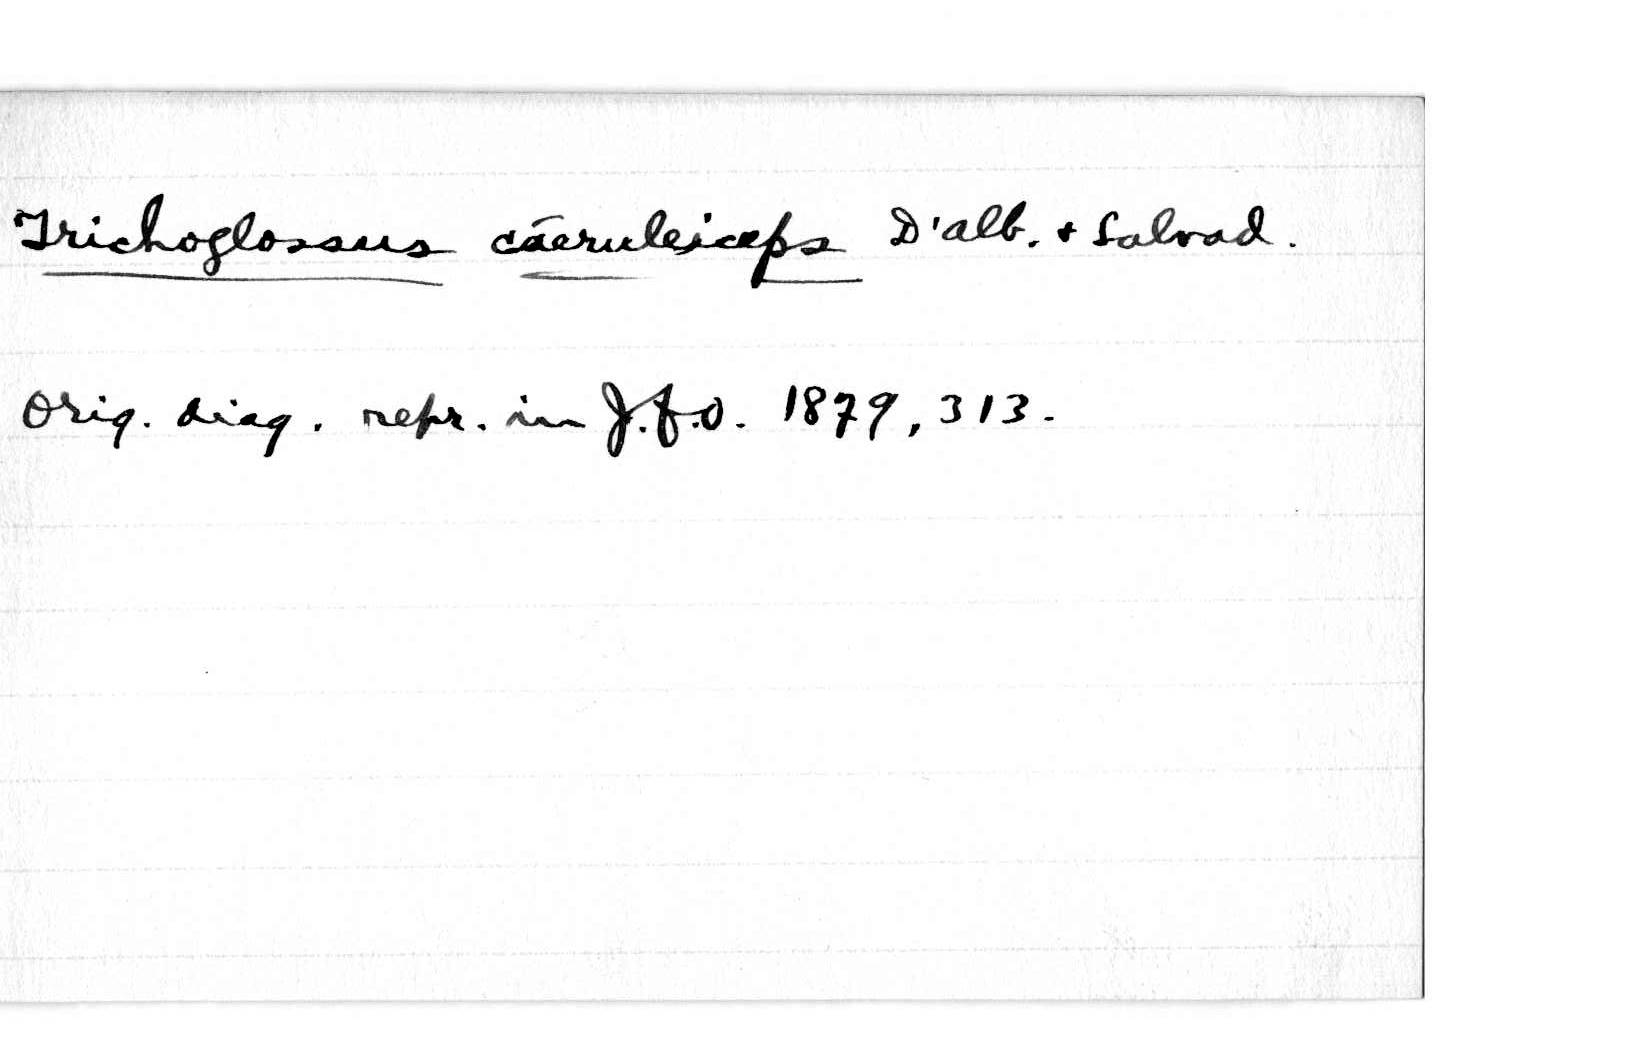 Trichoglossus caeruleiceps D'alb. + Salvad.
Orig. diag. repr. in J.f.O. 1879, 313.